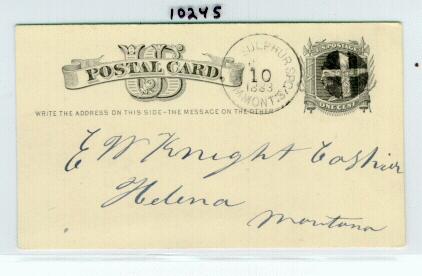 10245
US
POSTAL CARD.
SULPHUR SPGS
10
1883
MONT.
U.S. POSTAGE
ONE CENT
WRITE THE ADDRESS ON THIS SIDE-THE MESSAGE ON THE OTHER
E W Knight Cashier
Helena
Montana